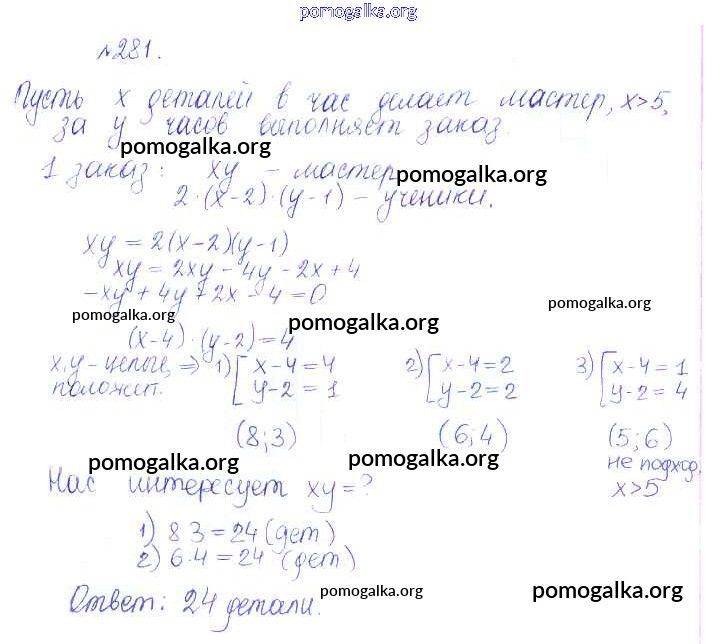 pomogalka.org
№281.
Пусть x деталей в час делает мастер, x>5,
за y часов выполняет заказ.
pomogalka.org
1 заказ: xy - мастер
pomogalka.org
2·(x-2)·(y-1) - ученики.
xy = 2(x-2)(y-1)
xy = 2xy - 4y - 2x + 4
-xy + 4y + 2x - 4 = 0
pomogalka.org
pomogalka.org
pomogalka.org
(x-4)·(y-2)=4
x,y - целые, => 1) [x-4=4 2) [x-4=2 3) [x-4=1
положит. y-2=1 y-2=2 y-2=4
(8;3) (6;4) (5;6)
pomogalka.org
pomogalka.org
не подход.
Нас интересует xy=? x>5
1) 8 3=24 (дет)
2) 6·4=24 (дет)
Ответ: 24 детали.
pomogalka.org
pomogalka.org